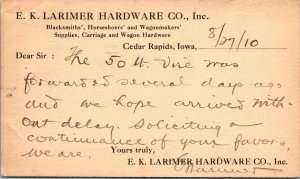 E. K. LARIMER HARDWARE CO., Inc.
Blacksmiths', Horseshoers' and Wagonmakers'
Supplies, Carriage and Wagon Hardware
Cedar Rapids, Iowa, 8/27/10
Dear Sir: The 50 lb. Vise was
forwarded several days ago
and we hope arrived with-
out delay. Soliciting a
continuance of your favors,
we are. Yours truly,
E. K. LARIMER HARDWARE CO., Inc.